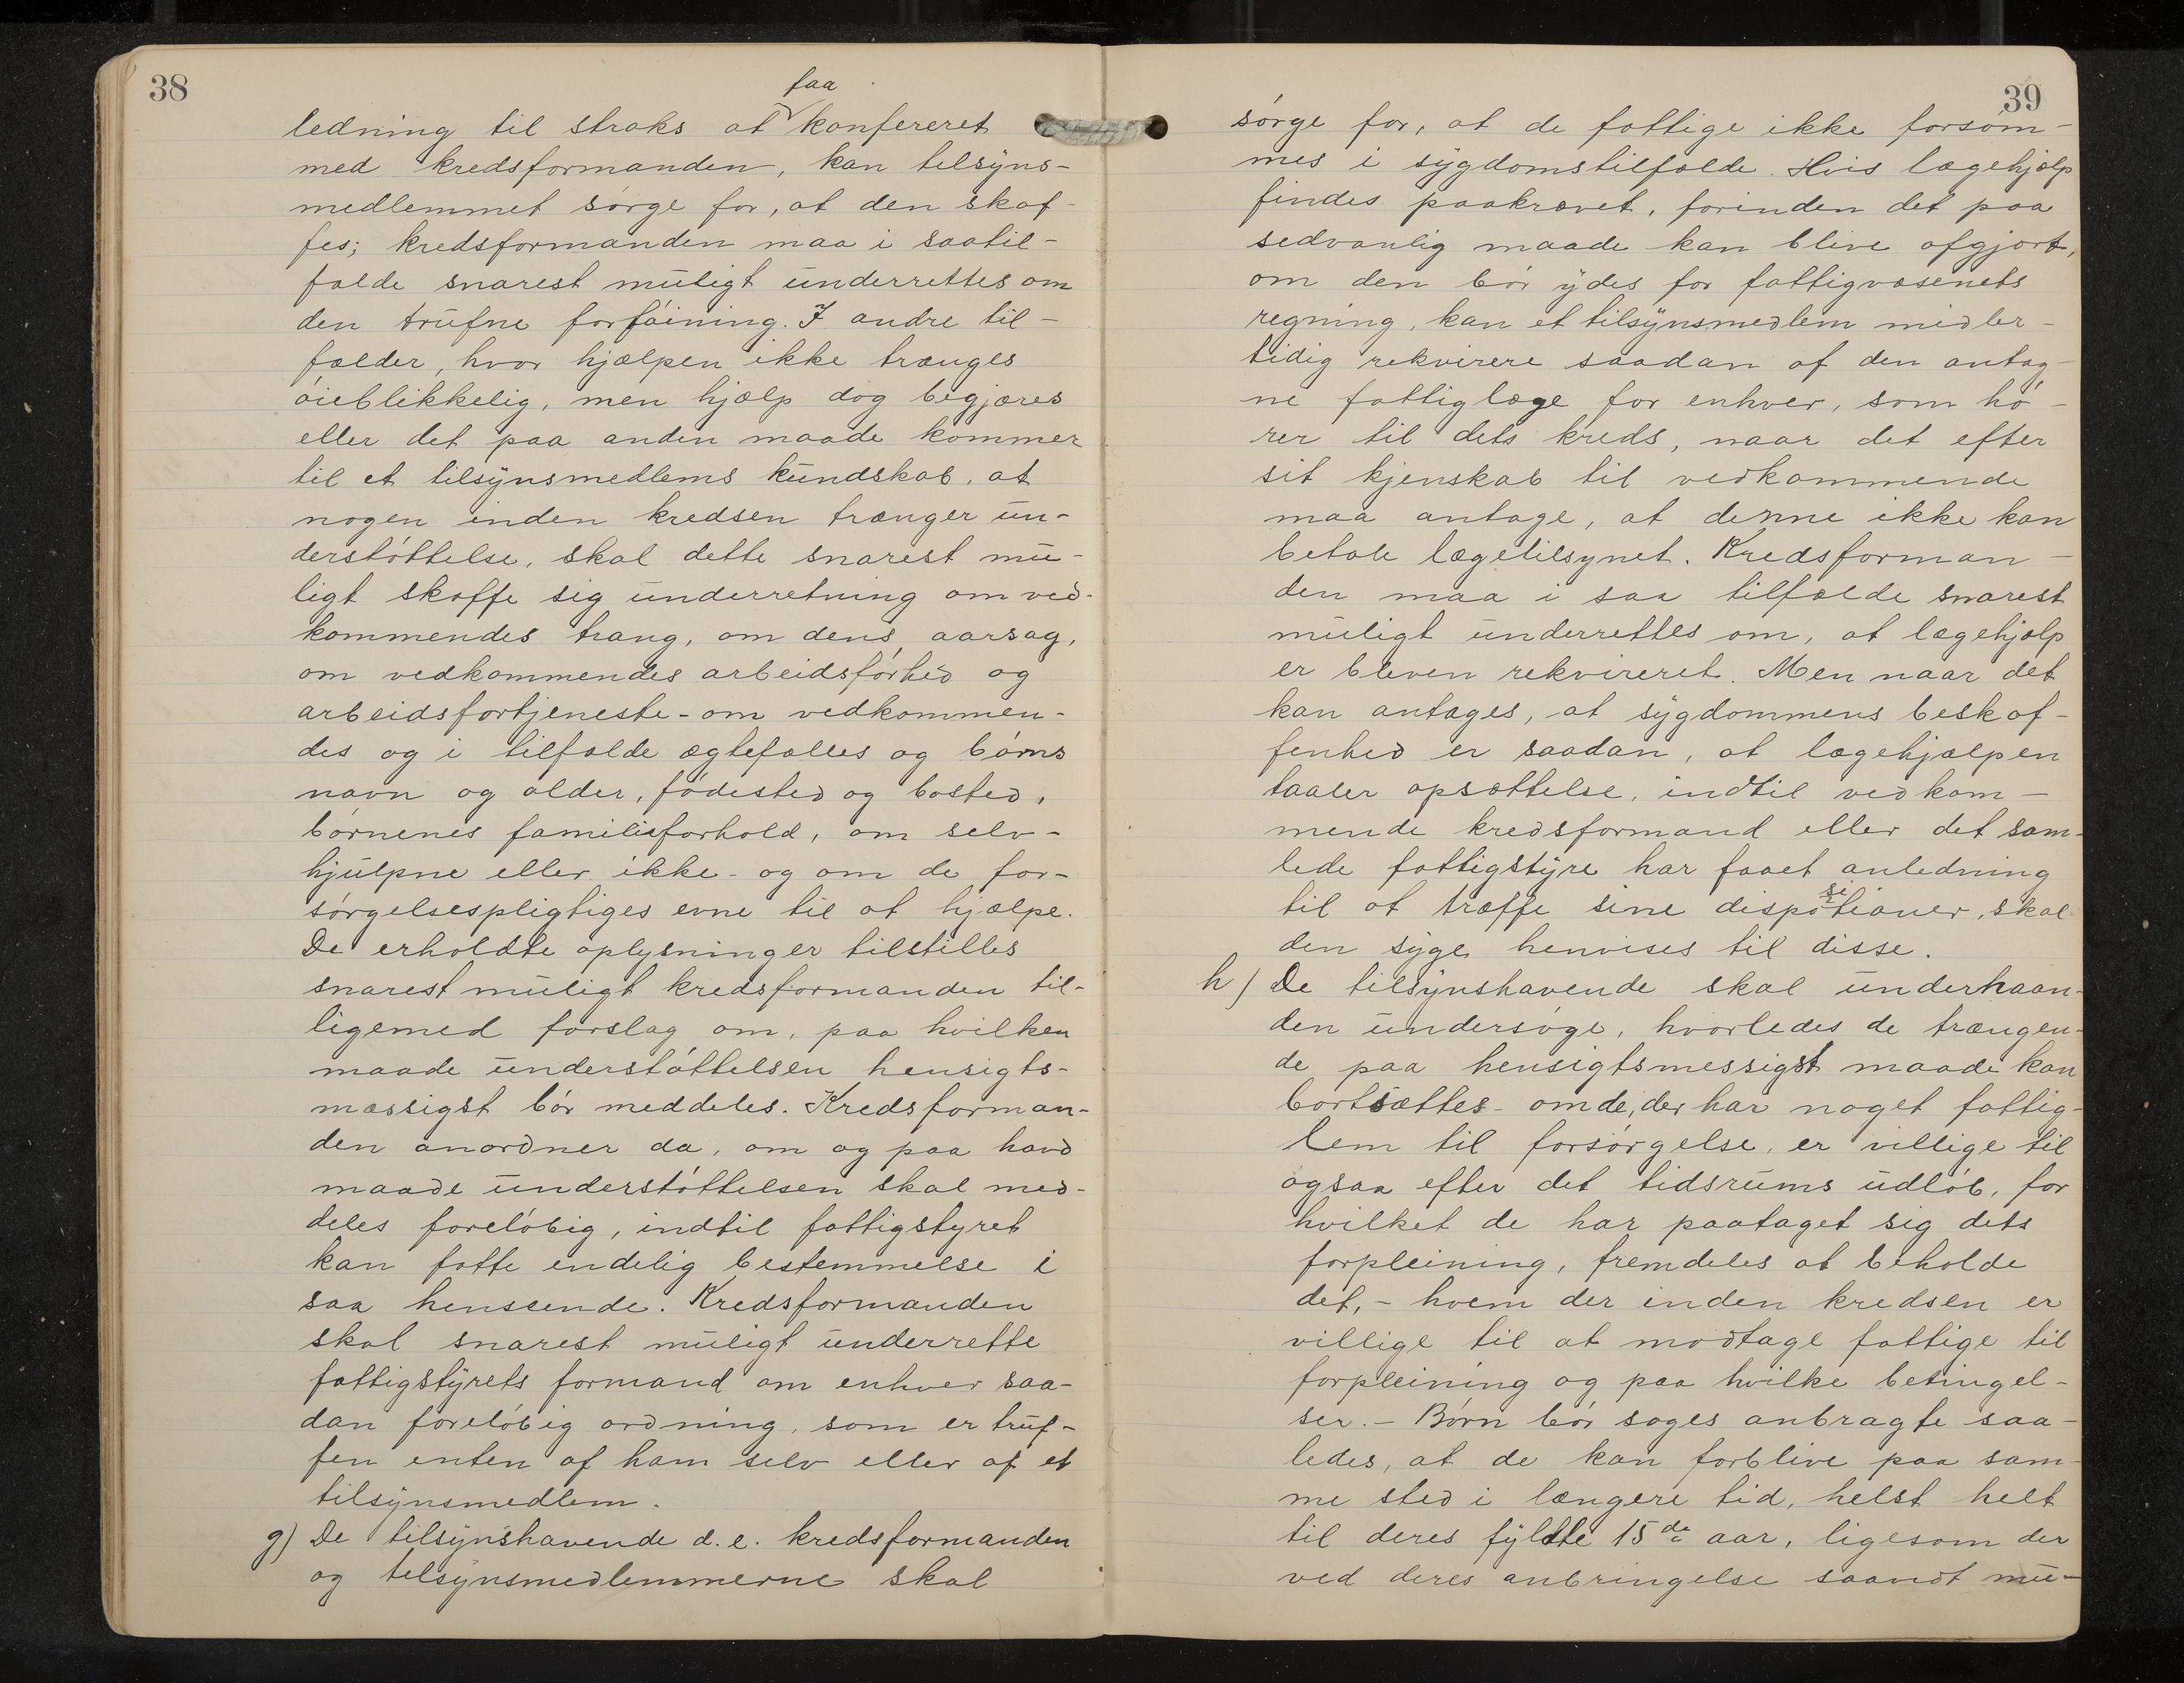 38
faa
ledning til straks at konfereret
med kredsformanden, kan tilsyns-
medlemmet sørge for, at den skaf-
fes; kredsformanden maa i saatil-
fælde snarest muligt underrettes om
den trufne forføining. I andre til-
fælder, hvor hjælpen ikke trænges
øieblikkelig, men hjælp dog begjæres
eller det paa anden maade kommer
til et tilsynsmedlems kundskab, at
nogen inden kredsen trænger un-
derstøttelse, skal dette snarest mu-
ligt skaffe sig underretning om ved-
kommendes trang, om dens aarsag,
om vedkommendes arbeidsførhed og
arbeidsfortjeneste - om vedkommen-
des og i tilfælde ægtefælles og børns
navn og alder, fødested og bosted,
børnenes familieforhold, om selv-
hjulpne eller ikke - og om de for-
sørgelsespligtiges evne til at hjælpe.
De erholdte oplysninger tilstilles
snarest muligt kredsformanden til-
ligemed forslag om, paa hvilken
maade understøttelsen hensigts-
mæssigst bør meddeles. Kredsforman-
den anordner da, om og paa hvad
maade understøttelsen skal med-
deles foreløbig, indtil fattigstyret
kan fatte endelig bestemmelse i
saa henseende. Kredsformanden
skal snarest muligt underrette
fattigstyrets formand om enhver saa-
dan foreløbig ordning, som er truf-
fen enten af ham selv eller af et
tilsynsmedlem.
g) De tilsynshavende d.e. kredsformanden
og tilsynsmedlemmerne skal
39
sørge for, at de fattige ikke forsøm-
mes i sygdomstilfælde. Hvis lægehjælp
findes paakrævet, forinden det paa
sedvanlig maade kan blive afgjort,
om den bør ydes for fattigvæsenets
regning, kan et tilsynsmedlem midler-
tidig rekvirere saadan af den antag-
ne fattiglæge for enhver, som hø-
rer til dets kreds, naar det efter
sit kjenskab til vedkommende
maa antage, at denne ikke kan
betale lægetilsynet. Kredsforman-
den maa i saa tilfælde snarest
muligt underrettes om, at lægehjælp
er bleven rekvireret. Men naar det
kan antages, at sygdommens beskaf-
fenhed er saadan, at lægehjælpen
taaler opsættelse, indtil vedkom-
mende kredsformand eller det sam-
lede fattigstyre har faaet anledning
si
til at træffe sine dispotioner, skal
den syge henvises til disse.
h) De tilsynshavende skal underhaan-
den undersøge, hvorledes de trængen-
de paa hensigtsmessigst maade kan
bortsættes - om de, der har noget fattig-
lem til forsørgelse, er villige til
ogsaa efter det tidsrums udløb, for
hvilket de har paataget sig dets
forpleining, fremdeles at beholde
det, - hvem der inden kredsen er
villige til at modtage fattige til
forpleining og paa hvilke betingel-
ser. - Børn bør søges anbragte saa-
ledes, at de kan forblive paa sam-
me sted i længere tid, helst helt
til deres fyldte 15de aar, ligesom der
ved deres anbringelse saavdt mu-